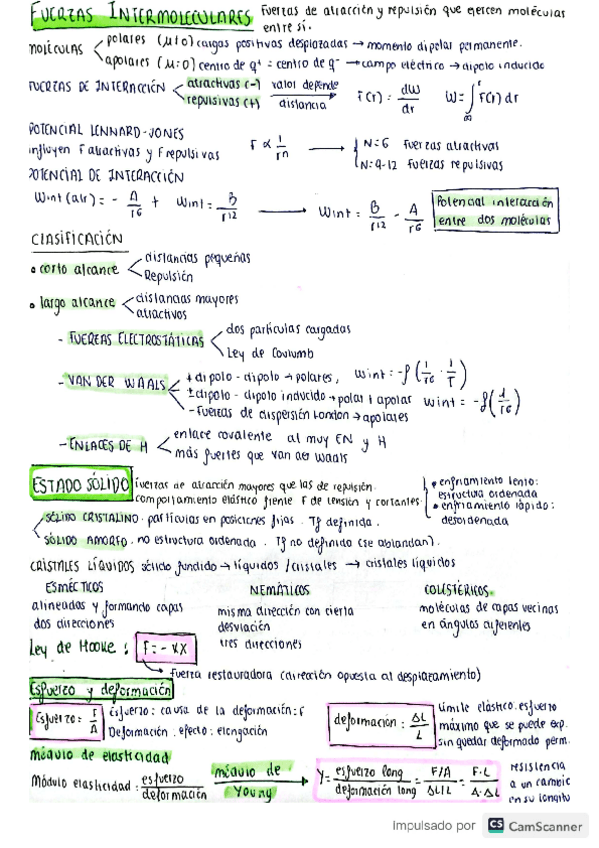 FUERZAS INTERMOLECULARES fuerzas de atracción y repulsión que ejercen moléculas
entre sí.
MOLÉCULAS polares (μ≠0) cargas positivas desplazadas → momento dipolar permanente.
apolares (μ=0) centro de q+ = centro de q- → campo eléctrico → dipolo inducido
FUERZAS DE INTERACCIÓN atractivas (-) valor depende F(r) = dW/dr W = ∫∞r F(r) dr
repulsivas (+) distancia
POTENCIAL LENNARD-JONES
influyen F atractivas y F repulsivas F ∝ 1/rn → N=6 fuerzas atractivas
N=9-12 fuerzas repulsivas
POTENCIAL DE INTERACCIÓN
Wint (atr) = - A/r6 + Wint = B/r12 → Wint = B/r12 - A/r6 Potencial interacción
entre dos moléculas
CLASIFICACIÓN
• corto alcance distancias pequeñas
Repulsión
• largo alcance distancias mayores
atractivos
- FUERZAS ELECTROSTÁTICAS dos partículas cargadas
Ley de Coulumb
- VAN DER WAALS + dipolo - dipolo → polares, Wint = -f (1/r6 · 1/T)
± dipolo - dipolo inducido → polar + apolar Wint = -f (1/r6)
- Fuerzas de dispersión London → apolares
- ENLACES DE H enlace covalente al muy EN y H
más fuertes que van der waals
ESTADO SÓLIDO fuerzas de atracción mayores que las de repulsión.
comportamiento elástico frente F de tensión y cortantes.
• enfriamiento lento:
estructura ordenada
• enfriamiento rápido:
desordenada
SÓLIDO CRISTALINO. partículas en posiciones fijas. Tf definida.
SÓLIDO AMORFO. no estructura ordenada. Tf no definida (se ablandan).
CRISTALES LÍQUIDOS sólido fundido → líquidos / cristales → cristales líquidos
ESMÉCTICOS NEMÁTICOS COLESTÉRICOS.
alineadas y formando capas misma dirección con cierta moléculas de capas vecinas
dos direcciones desviación en ángulos diferentes
tres direcciones
Ley de Hooke: F = -KX
fuerza restauradora (dirección opuesta al desplazamiento)
Esfuerzo y deformación
Esfuerzo = F/A Esfuerzo: causa de la deformación: F
Deformación. efecto: elongación
deformación: ΔL/L
límite elástico. esfuerzo
máximo que se puede exp.
sin quedar deformado perm.
módulo de elasticidad
Módulo elasticidad: esfuerzo/deformación módulo de Young → Y = esfuerzo long/deformación long = F/A / ΔL/L = F·L/A·ΔL
resistencia
a un cambio
en su longitu
Impulsado por CS CamScanner